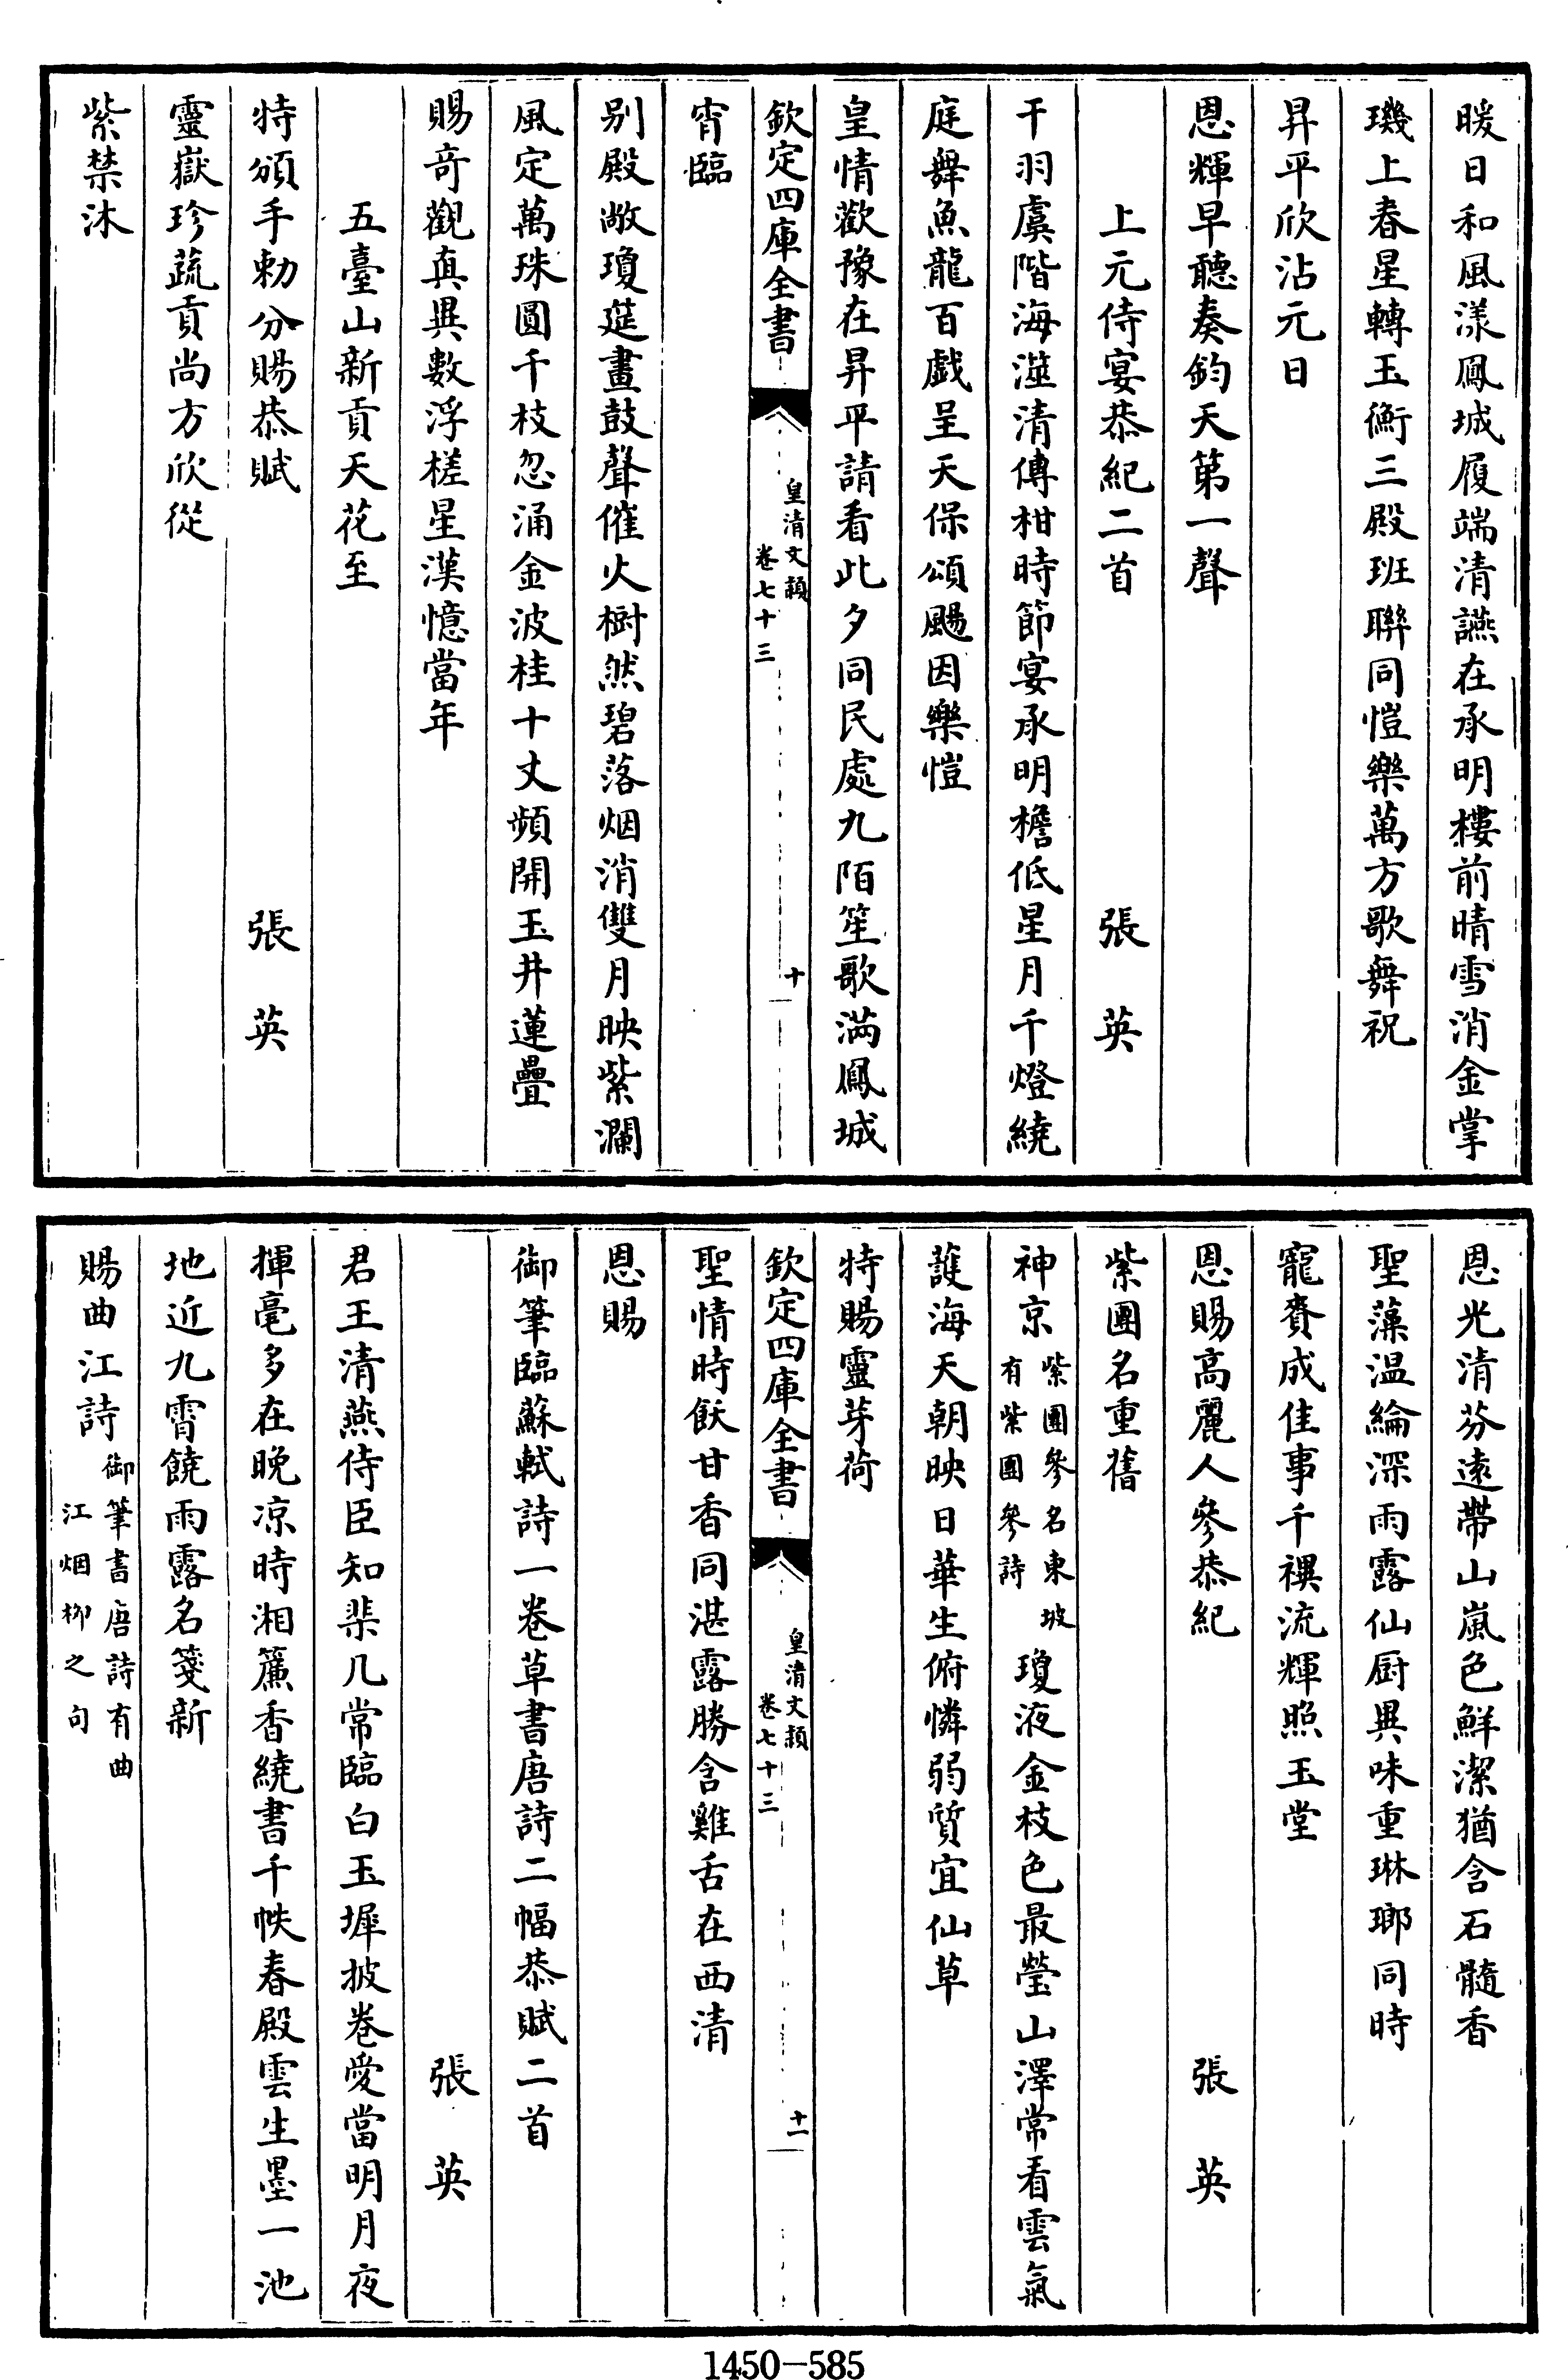 暖日和風漾鳳城履端清讌在承明樓前晴雪消金掌
璣上春星轉玉衡三殿班聯同愷樂萬方歌舞祝
昇平欣沾元日
恩輝早聽奏鈞天第一聲
上元侍宴恭紀二首　張英
干羽虞階海澨清傳柑時節宴承明檐低星月千燈繞
庭舞魚龍百戲呈天保頌颺因樂愷
皇情歡豫在昇平請看此夕同民處九陌笙歌滿鳳城
欽定四庫全書　皇清文穎　卷七十三　十
宵臨
別殿敞瓊筵畫鼓聲催火樹然碧落烟消雙月映紫瀾
風定萬珠圓千枝忽涌金波桂十丈頻開玉井蓮疊
賜奇觀真異數浮槎星漢憶當年
五臺山新貢天花至
特頒手勅分賜恭賦　張英
靈嶽珍蔬貢尚方欣從
紫禁沐
恩光清芬遠帶山嵐色鮮潔猶含石髓香
聖藻溫綸深雨露仙厨異味重琳瑯同時
寵賚成佳事千禩流輝照玉堂
恩賜高麗人參恭紀　張英
紫團名重舊
神京紫團參名東坡有紫團參詩瓊液金枝色最瑩山澤常看雲氣
護海天朝映日華生俯憐弱質宜仙草
特賜靈芽荷
欽定四庫全書　皇清文穎　卷七十三　十一
聖情時飫甘香同湛露勝含雞舌在西清
恩賜
御筆臨蘇軾詩一卷草書唐詩二幅恭賦二首
張英
君王清燕侍臣知棐几常臨白玉墀披卷愛當明月夜
揮毫多在晚涼時湘簾香繞書千帙春殿雲生墨一池
地近九霄饒雨露名箋新
賜曲江詩御筆書唐詩有曲江烟柳之句
1450-585